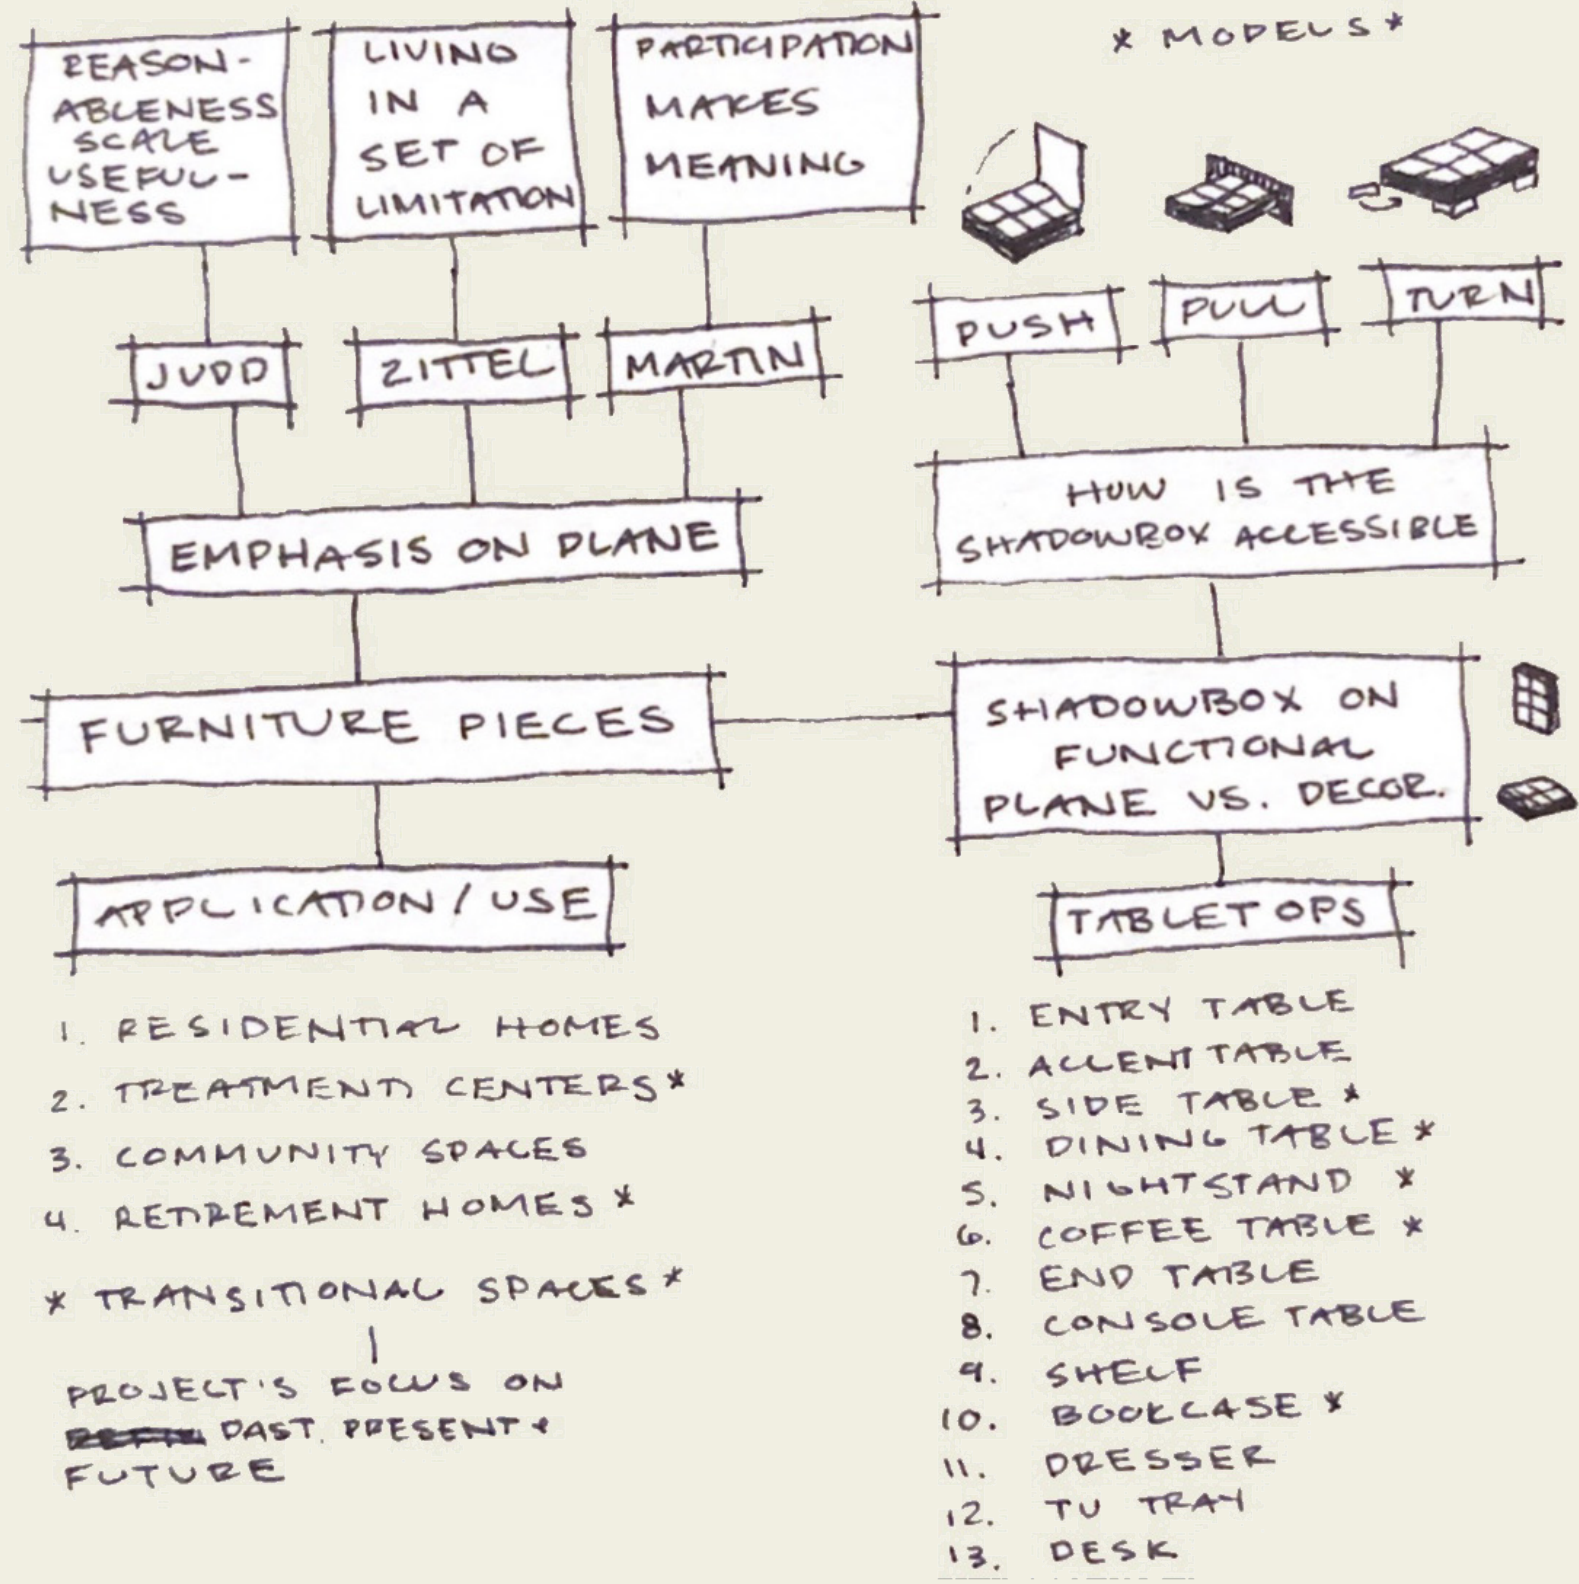 REASON-
ABLENESS
SCALE
USEFUL-
NESS
LIVING
IN A
SET OF
LIMITATION
PARTICIPATION
MAKES
MEANING
* MODELS *
JUDD
ZITTEL
MARTIN
PUSH
PULL
TURN
EMPHASIS ON PLANE
HOW IS THE
SHADOWBOX ACCESSIBLE
FURNITURE PIECES
SHADOWBOX ON
FUNCTIONAL
PLANE VS. DECOR.
APPLICATION / USE
TABLETOPS
1. RESIDENTIAL HOMES
2. TREATMENT CENTERS *
3. COMMUNITY SPACES
4. RETIREMENT HOMES *
* TRANSITIONAL SPACES *
PROJECT'S FOCUS ON
PAST, PRESENT +
FUTURE
1. ENTRY TABLE
2. ACCENT TABLE
3. SIDE TABLE *
4. DINING TABLE *
5. NIGHTSTAND *
6. COFFEE TABLE *
7. END TABLE
8. CONSOLE TABLE
9. SHELF
10. BOOKCASE *
11. DRESSER
12. TV TRAY
13. DESK